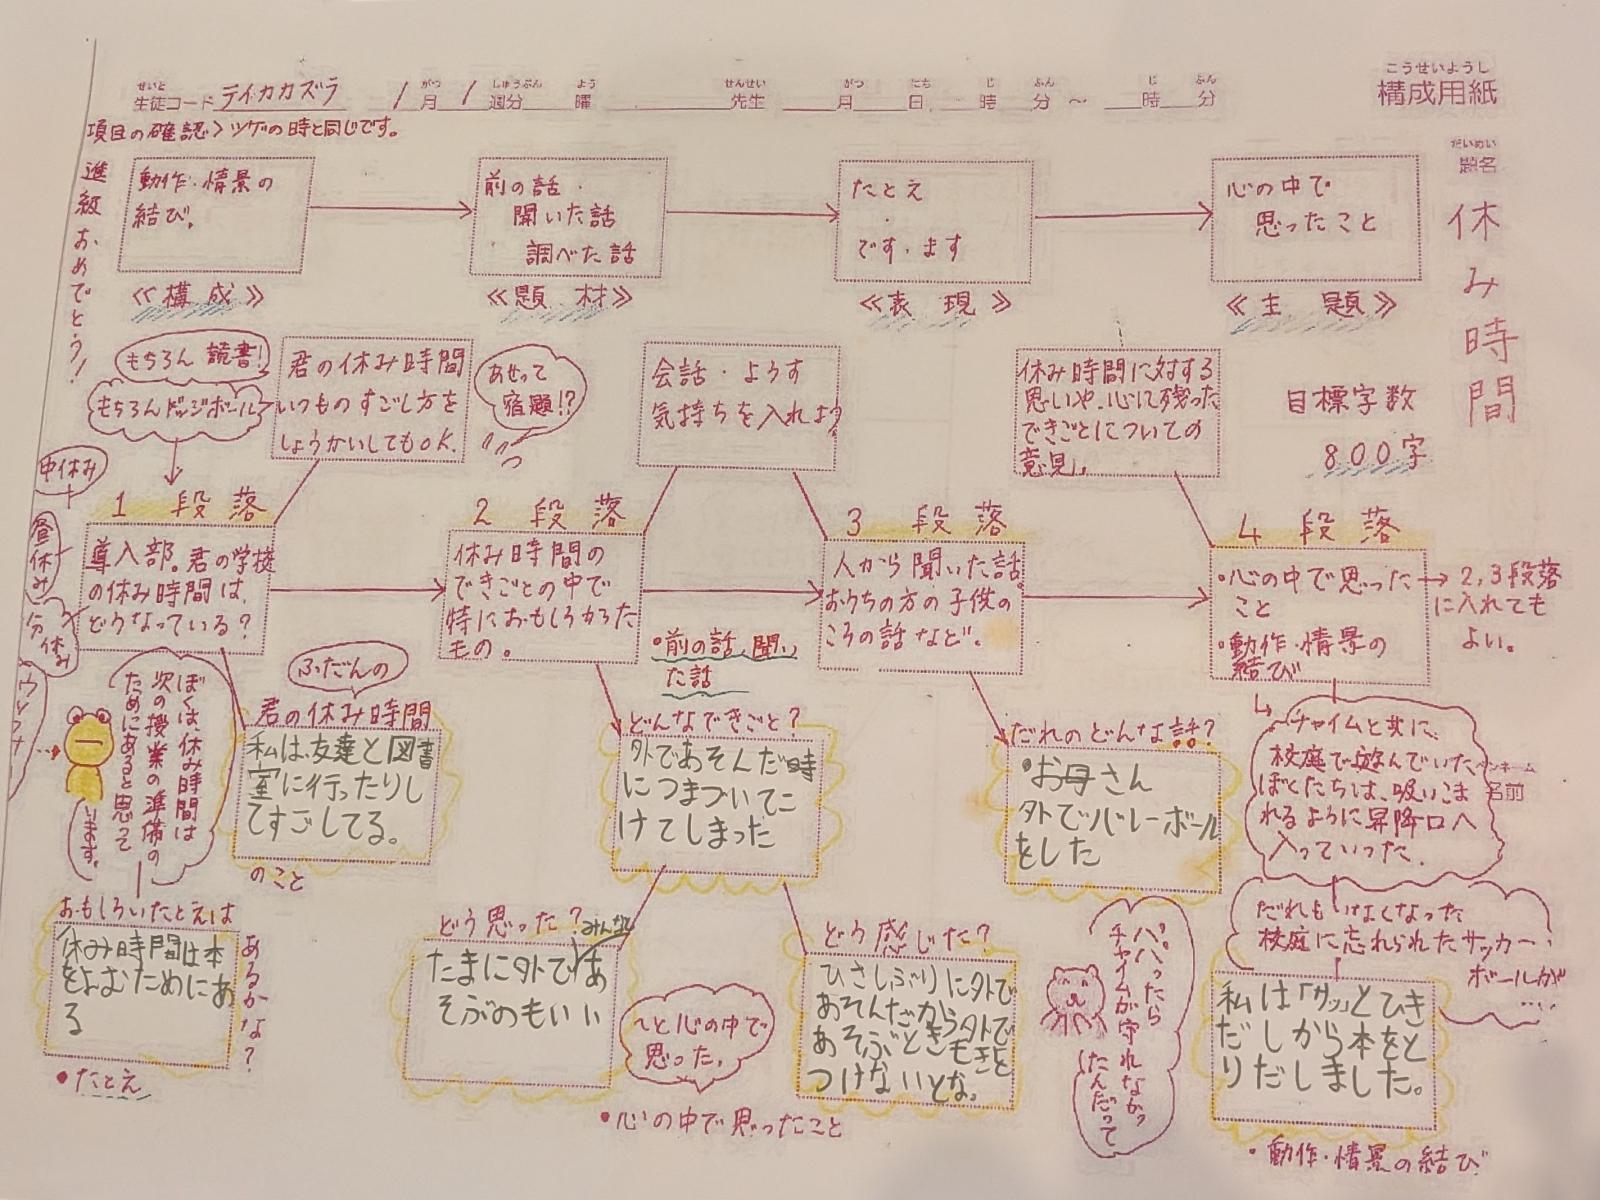 構成用紙
こうせいようし
生徒コード テイカカズラ 1月1週分 曜 先生 月 日 時 分 〜 時 分
せいと がつ しゅうぶん よう せんせい がつ にち じ ふん じ ふん
項目の確認〉ツゲの時と同じです。
進級おめでとう!
だいめい
題名
休み時間
目標字数
800字
動作・情景の
結び。
≪構成≫
前の話・
聞いた話
調べた話
≪題材≫
たとえ
・
です・ます
≪表現≫
心の中で
思ったこと
≪主題≫
もちろん読書!
もちろんドッジボール
君の休み時間
いつものすごし方を
しょうかいしてもOK.
あせって
宿題!?
会話・ようす
気持ちを入れよう
休み時間に対する
思いや、心に残った
できごとについての
意見。
中休み
昼休み
分休み
1段落
導入部。君の学校
の休み時間は、
どうなっている?
2段落
休み時間の
できごとの中で
特におもしろかった
もの。
3段落
人から聞いた話。
おうちの方の子供の
ころの話など。
4段落
・心の中で思った
こと
・動作・情景の
結び
→2,3段落
に入れても
よい。
ぼくは、休み時間は
次の授業の準備の
ためにあると思って
います。
ふだんの
君の休み時間
私は、友達と図書
室に行ったりし
てすごしてる。
のこと
・前の話、聞い
た話
どんなできごと?
外であそんだ時
につまづいてこ
けてしまった
だれのどんな話?
・お母さん
外でバレーボール
をした
チャイムと共に、
校庭で遊んでいた
ぼくたちは、吸いこま
れるように昇降口へ
入っていった.
ペンネーム
名前
おもしろいたとえは
あるかな?
休み時間は本
をよむためにあ
る
・たとえ
どう思った?
みんなで
たまに外であ
そぶのもいい
〜と心の中で
思った。
・心の中で思ったこと
どう感じた?
ひさしぶりに外で
あそんだから
あそぶときも
つけないとな。
パパったら
チャイムが守れなかっ
たんだって
だれもいなくなった
校庭に忘れられたサッカー
ボールが
....
私は「サッ」とひき
だしから本をと
りだしました。
・動作・情景の結び